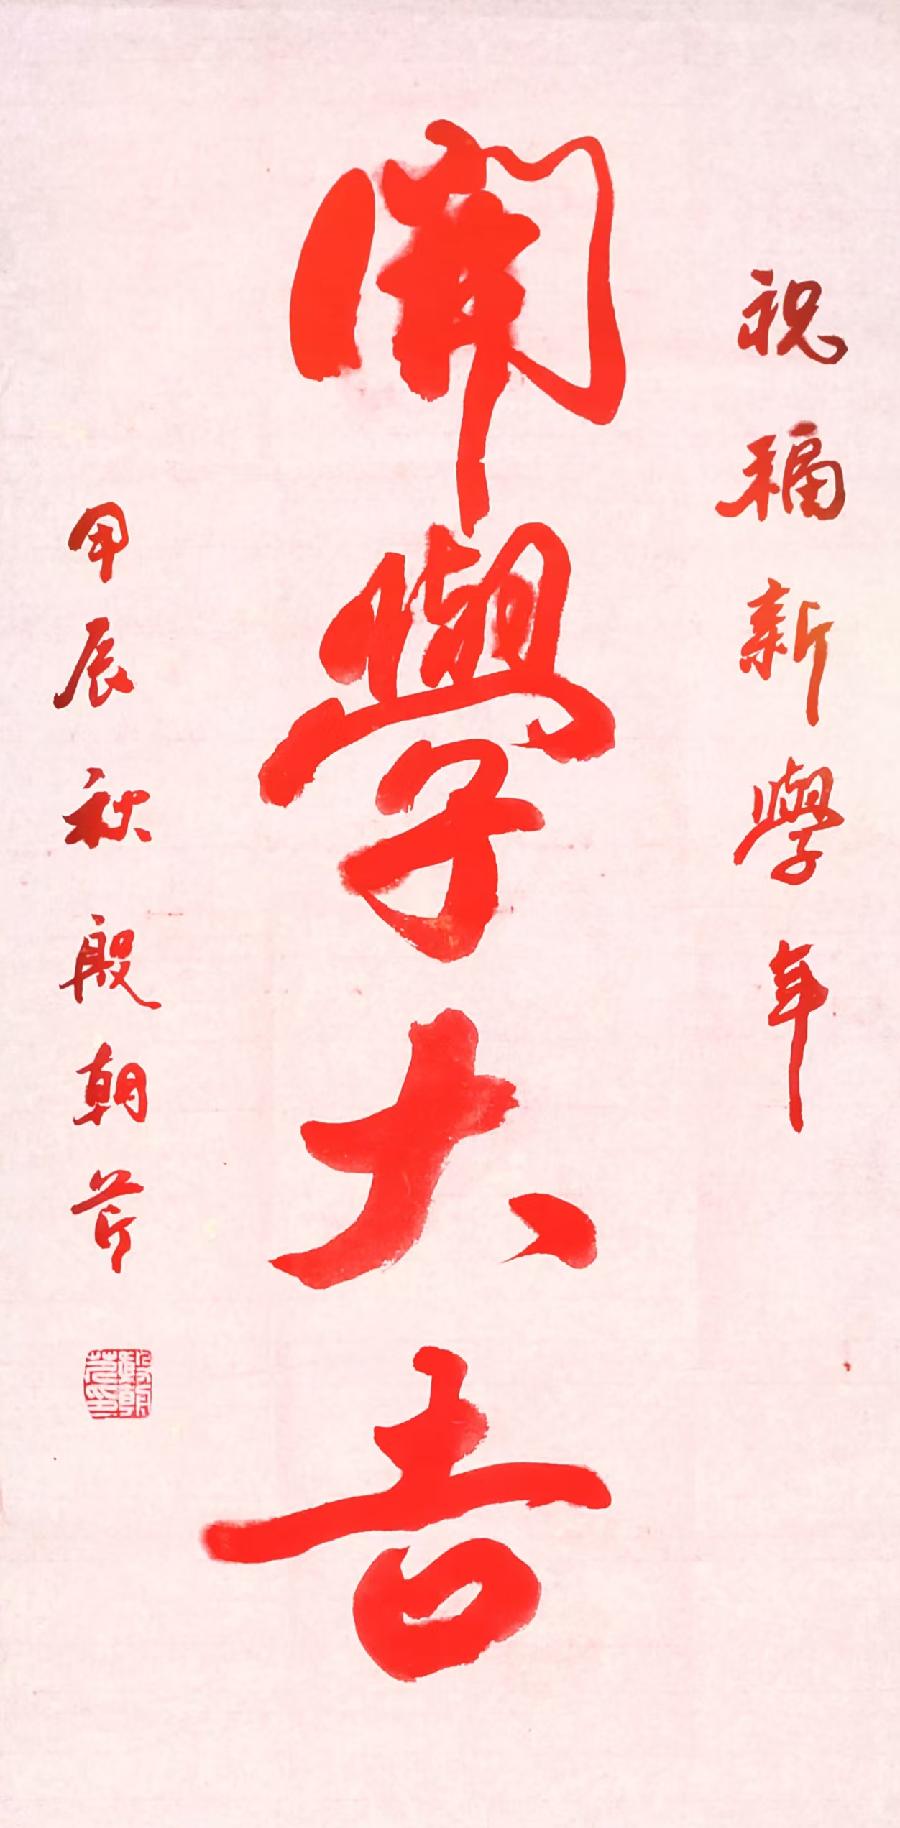 祝福新學年
開學大吉
甲辰秋殷朝芹